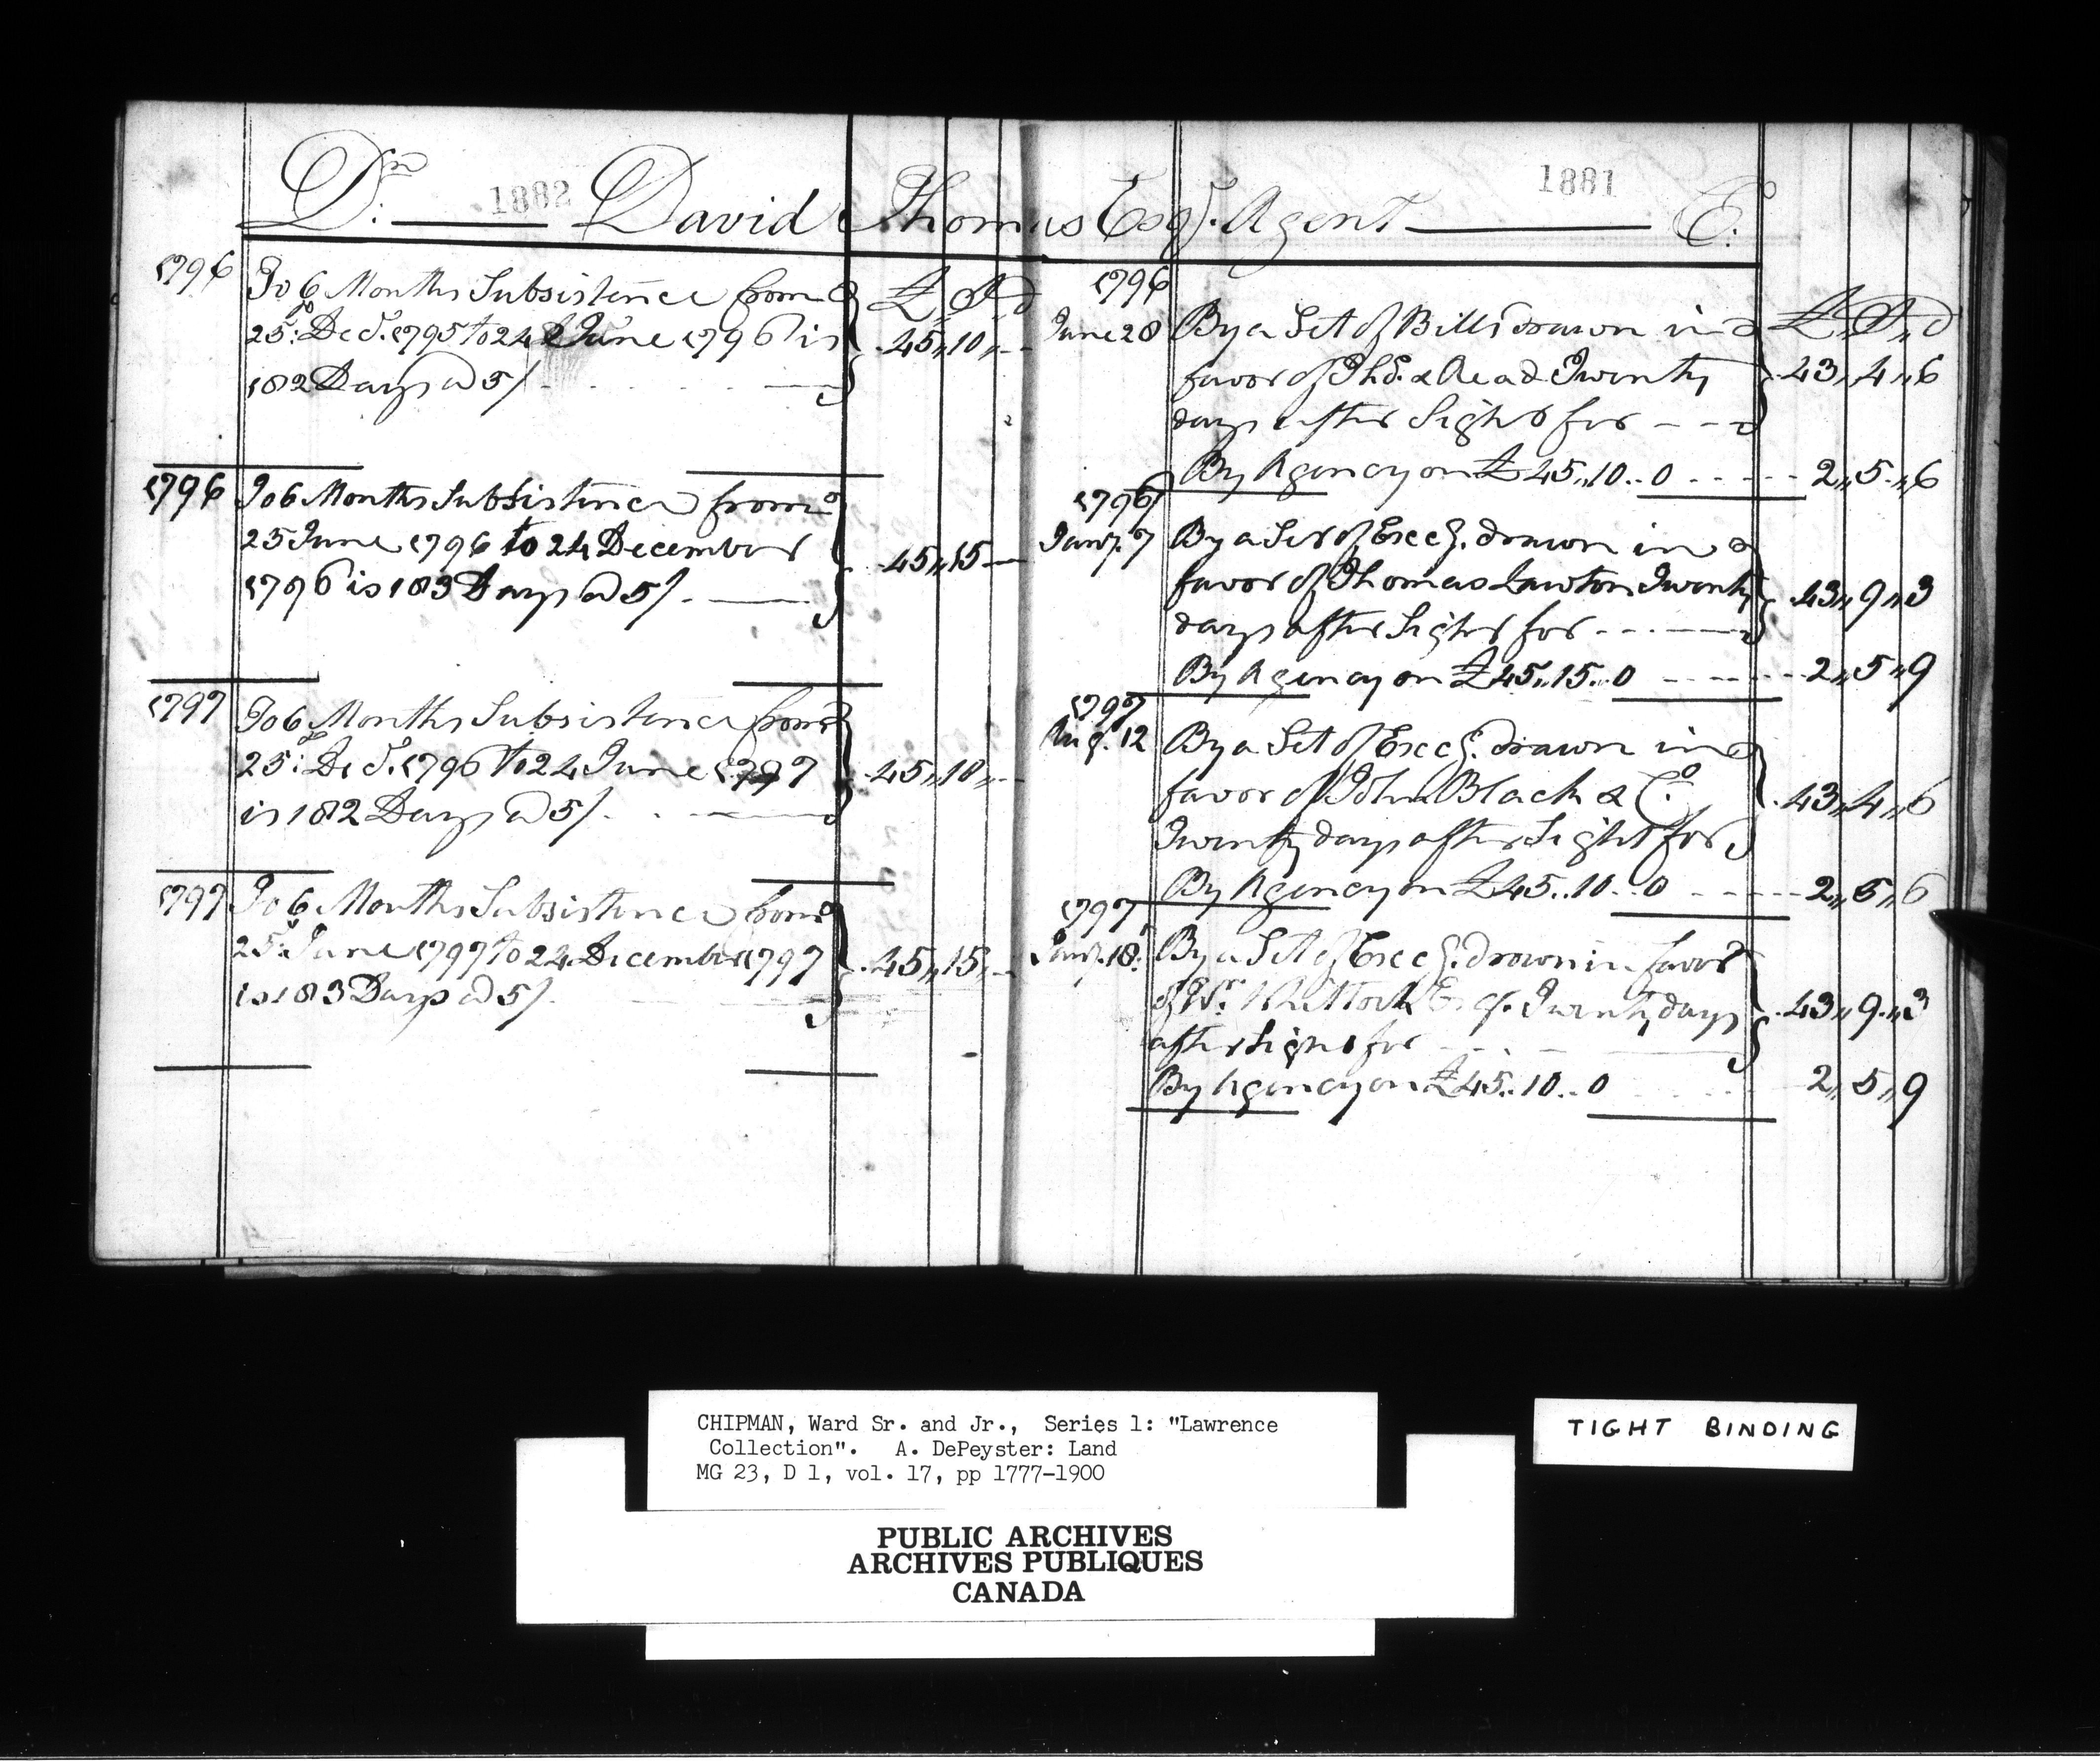 1882
1881
Dr. David Thomas Esqr. Agent Cr.
1796 To 6 Months Subsistence from £ S d
25: Decr. 1795 to 24 June 1796 is 45,,10,,-
182 Days @ 5/
1796 To 6 Months Subsistence from
25 June 1796 to 24 December 45,,15
1796 is 183 Days @ 5/
1797 To 6 Months Subsistence from
25: Decr. 1796 to 24 June 1797 45,,10,,-
is 182 Days @ 5/
1797 To 6 Months Subsistence from
25: June 1797 to 24 December 1797 45,,15,,-
is 183 Days @ 5/
1796
June 28 By a Set of Bills drawn in £,,S,,d
favor of & Read Twenty 43,,4,,6
days after Sight for
By Agency on £45,,10..0 2,,5,,6
1796
Jany. 7 By a Set of Excg. drawn in
favor of Thomas Lawton Twenty 43,,9,,3
days after Sight for
By Agency on £45,,15..0 2,,5,,9
1797
Aug. 12 By a Set of Excg. drawn in
favor of John Black & Co. 43,,4,,6
Twenty days after Sight for
By Agency on £45..10..0 2,,5,,6
1797
Jany. 18: By a Set of Excg. drawn in favor
of Wm. Esqr. Twenty days 43,,9,,3
after Sight for
By Agency on £45..10..0 2,,5,,9
CHIPMAN, Ward Sr. and Jr., Series 1: "Lawrence
Collection". A. DePeyster: Land
MG 23, D 1, vol. 17, pp 1777-1900
TIGHT BINDING
PUBLIC ARCHIVES
ARCHIVES PUBLIQUES
CANADA